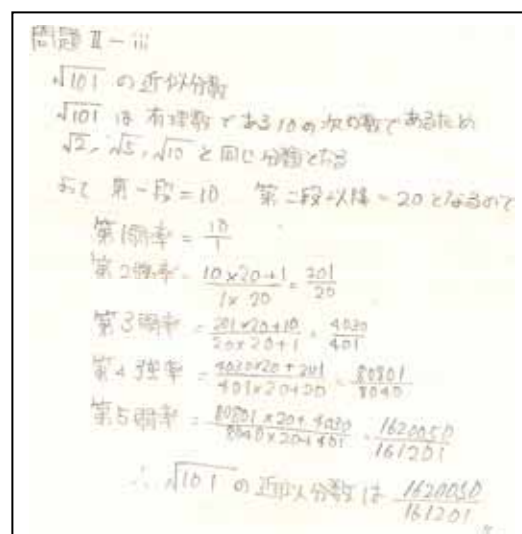 問題Ⅱ-ⅲ
√101 の近似分数
√101 は有理数である10の次の数であるため
√2, √5, √10 と同じ分類となる
よって 第一段=10 第二段以降=20となるので
第1弱率 = 10/1
第2強率 = 10×20+1/1×20 = 201/20
第3弱率 = 201×20+10/20×20+1 = 4030/401
第4強率 = 4030×20+201/401×20+20 = 80801/8040
第5弱率 = 80801×20+4030/8040×20+401 = 1620050/161201
∴ √101 の近似分数は 1620050/161201